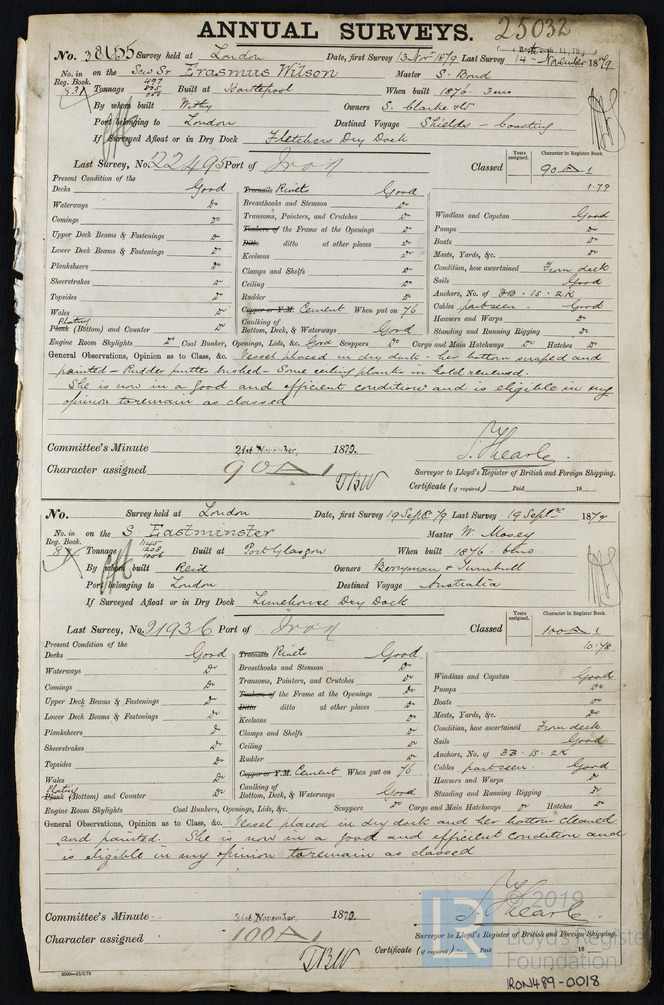 ANNUAL SURVEYS. 25032
No. 38655 Survey held at London Date, first Survey 13 Novr 1879 Last Survey 14th November 1879
No. in Reg. Book. 831 on the Scw Sr Erasmus Wilson Master S. Bond
Tonnage 497 Built at Hartlepool When built 1876 . 3mo
By whom built Withy Owners S. Clarke & Co
Port belonging to London Destined Voyage Shields - Coasting
If Surveyed Afloat or in Dry Dock Fletchers Dry Dock
Last Survey, No. 22495 Port of Iron Classed Years assigned. Character in Register Book. 90 A 1
1.79
Present Condition of the
Decks Good Treenails Rivets Good
Waterways Do Breasthooks and Stemson Do Windlass and Capstan Good
Comings Do Transoms, Pointers, and Crutches Do Pumps Do
Upper Deck Beams & Fastenings Do Timbers of the Frame at the Openings Do Boats Do
Lower Deck Beams & Fastenings Do Ditto ditto at other places Do Masts, Yards, &c. Do
Planksheers Do Keelsons Do Condition, how ascertained From deck
Sheerstrakes Do Clamps and Shelfs Do Sails Good
Topsides Do Ceiling Do Anchors, No. of 3B. 1S. 2K
Wales Do Rudder Do Cables part seen. Good
Plating
Plank (Bottom) and Counter Do Copper or Y.M. Cement When put on 76 Hawsers and Warps Do
Caulking of Bottom, Deck, & Waterways Good Standing and Running Rigging Do
Engine Room Skylights Do Coal Bunkers, Openings, Lids, &c. Good Scuppers Do Cargo and Main Hatchways Do Hatches Do
General Observations, Opinion as to Class, &c. Vessel placed in dry dock - her bottom scraped and
painted - Rudder pintles bushed - Some ceiling planks in hold renewed.
She is now in a good and efficient condition and is eligible in my
opinion to remain as classed
Committee's Minute 21st November, 1879.
Character assigned 90 A 1
Surveyor to Lloyd's Register of British and Foreign Shipping.
Certificate (if required) Paid 18
No. Survey held at London Date, first Survey 19 Septr 79 Last Survey 19 Septr 1879
No. in Reg. Book. on the S Eastminster Master W. Mosey
Tonnage 1145 Built at Port Glasgow When built 1876
By whom built Reid Owners Berryman & Turnbull
Port belonging to London Destined Voyage Australia
If Surveyed Afloat or in Dry Dock Limehouse Dry Dock
Last Survey, No. 21936 Port of Iron Classed Years assigned. Character in Register Book. 100 A 1
10.78
Present Condition of the
Decks Good Treenails Rivets Good
Waterways Do Breasthooks and Stemson Do Windlass and Capstan Good
Comings Do Transoms, Pointers, and Crutches Do Pumps Do
Upper Deck Beams & Fastenings Do Timbers of the Frame at the Openings Do Boats Do
Lower Deck Beams & Fastenings Do Ditto ditto at other places Do Masts, Yards, &c. Do
Planksheers Do Keelsons Do Condition, how ascertained From deck
Sheerstrakes Do Clamps and Shelfs Do Sails Good
Topsides Do Ceiling Do Anchors, No. of 3B. 1S. 2K
Wales Do Rudder Do Cables part seen. Good
Plating
Plank (Bottom) and Counter Do Copper or Y.M. Cement When put on 76 Hawsers and Warps Do
Caulking of Bottom, Deck, & Waterways Good Standing and Running Rigging Do
Engine Room Skylights Coal Bunkers, Openings, Lids, &c. Scuppers Do Cargo and Main Hatchways Do Hatches Do
General Observations, Opinion as to Class, &c. Vessel placed in dry dock and her bottom cleaned
and painted. She is now in a good and efficient condition and
is eligible in my opinion to remain as classed
Committee's Minute 21st November, 1879.
Character assigned 100 A 1
Surveyor to Lloyd's Register of British and Foreign Shipping.
Certificate (if required) Paid 18
LR © 2019 Lloyd's Register Foundation
IRON489-0018